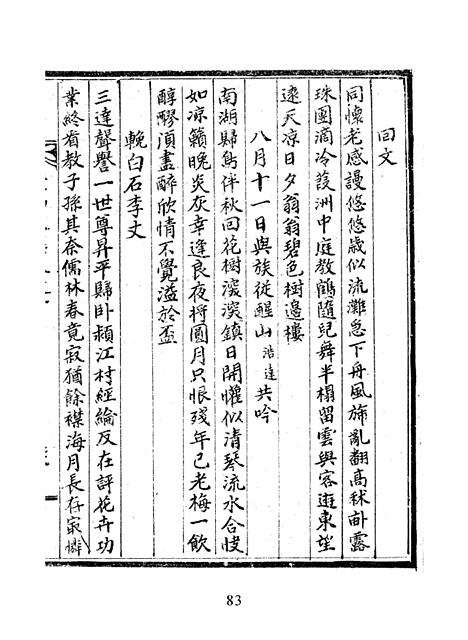 回文
同懷老感謾悠悠歲似流灘急下舟風旆亂翻髙秋露
珠圓滴冷葭洲中庭教鶴隨兒舞半榻留雲與客遊東望
遠天凉日夕翁翁碧色樹邊樓
八月十一日與族從醒山浩達共吟
南湖歸鳥伴秋回花樹鎮日開懽似清琴流水合
如凉籟晚炎灰幸逢良夜將圓月只恨殘年已老梅一飮
醇醪湏盡醉欣情不覺溢於盃
輓白石李丈
三達聲譽一世尊昇平歸卧江村經綸反在評花卉功
業終省教子孫其奈儒林春竟寂猶餘襟海月長存寂憐
83